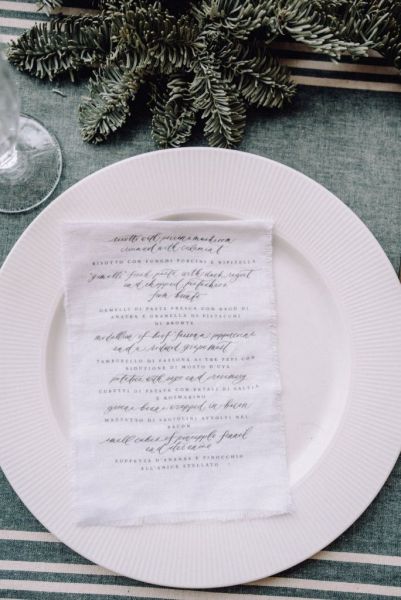 risotto with porcini mushroom
creamed with calamint
RISOTTO CON FUNGHI PORCINI E NIPITELLA
"gemelli" fresh pasta with duck ragout
and chopped pistachios
from bronte
GEMELLI DI PASTA FRESCA CON RAGÙ DI
ANATRA E GRANELLA DI PISTACCHI
DI BRONTE
medallion of beef fassona
and a reduced grape must
TAMBURELLO DI FASSONA AI TRE PEPI CON
RIDUZIONE DI MOSTO D'UVA
potatoes with sage and rosemary
CUBETTI DI PATATA CON PETALI DI SALVIA
E ROSMARINO
green beans wrapped in bacon
MAZZETTO DI FAGIOLINI AVVOLTI NEL
BACON
small cubes of pineapple fennel
and star anise
ZUPPETTA D'ANANAS E FINOCCHIO
ALL'ANICE STELLATO